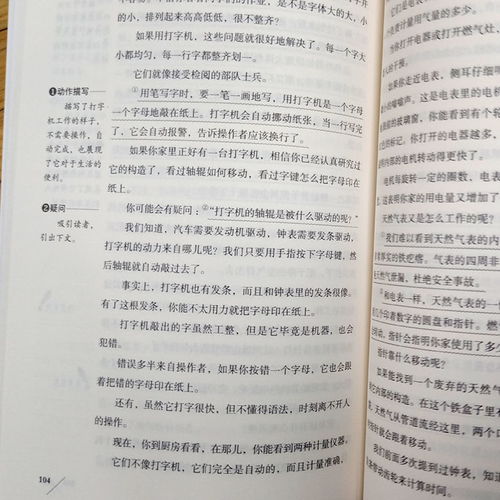 的小、排列起来高高低低、很不整齐？
如果用打字机，这些问题就很好地解决了。每一个字大
小都均匀，每一行字都整齐划一。
它们就像接受检阅的部队士兵。
①用笔写字时，要一笔一画地写，用打字机是一个字母
一个字母地敲在纸上。打字机会自动挪动纸张，当一行写完
了，它会自动报警，告诉操作者应该换行了。
如果你家里正好有一台打字机，相信你已经认真研究过
它的构造了，看过轴辊如何移动，看过字键怎么把字母印在
纸上。
你可能会有疑问：②“打字机的轴辊是被什么驱动的呢？”
我们知道，汽车需要发动机驱动，钟表需要发条驱动，
打字机的动力来自哪儿呢？我们只要用手指按下字母键，然
后轴辊就自动敲过去了。
事实上，打字机也有发条，而且和钟表里的发条很像。
有了这根发条，你能不太用力就把字母印在纸上。
打字机敲出的字虽然工整，但是它毕竟是机器，也会
犯错。
错误多半来自操作者，如果你按错一个字母，它也会跟
着把错的字母印在纸上。
还有，虽然它打字很快，但不懂得语法，时刻离不开人
的操作。
现在，你到厨房看看，在那儿，你能看到两种计量仪器。
它们不像打字机，它们完全是自动的，而且计量准确，
❶动作描写
描写了打字
机工作的样子，
不需要操作，自
动完成，也展现
了它对于生活的
便利。
❷疑问
吸引读者，
引出下文。
104
度计量用气量的多少。
当你打开电器或打开燃气灶，
人的干预。
如果你走近电表，侧耳仔细听
嗡嗡声。这是电表里的电机
的玻璃窗，你能看到有个
的标记，你打开的电器越多，
内部的电机转动得更快了。
电机每旋转一定的圈数，电表
这表明你家的用电量又增加了
天然气表又是怎么工作的呢？
我们难以看到天然气表的内
实的铁疙瘩。气表的四周非
天然气泄漏，杜绝安全事故。
和电表一样，天然气表的一
几个印着数字的圆盘和指针。燃
动，指针会指明你家使用了多少
指针靠什么移动呢？
如果能找到一个废弃的天然气
内部的构造。在这个铁盒子里有
天然气从管道流经这里，两个口
指针就会跟着移动。
我们前面多次提到过钟表，知道
条带动齿轮来计算时间。